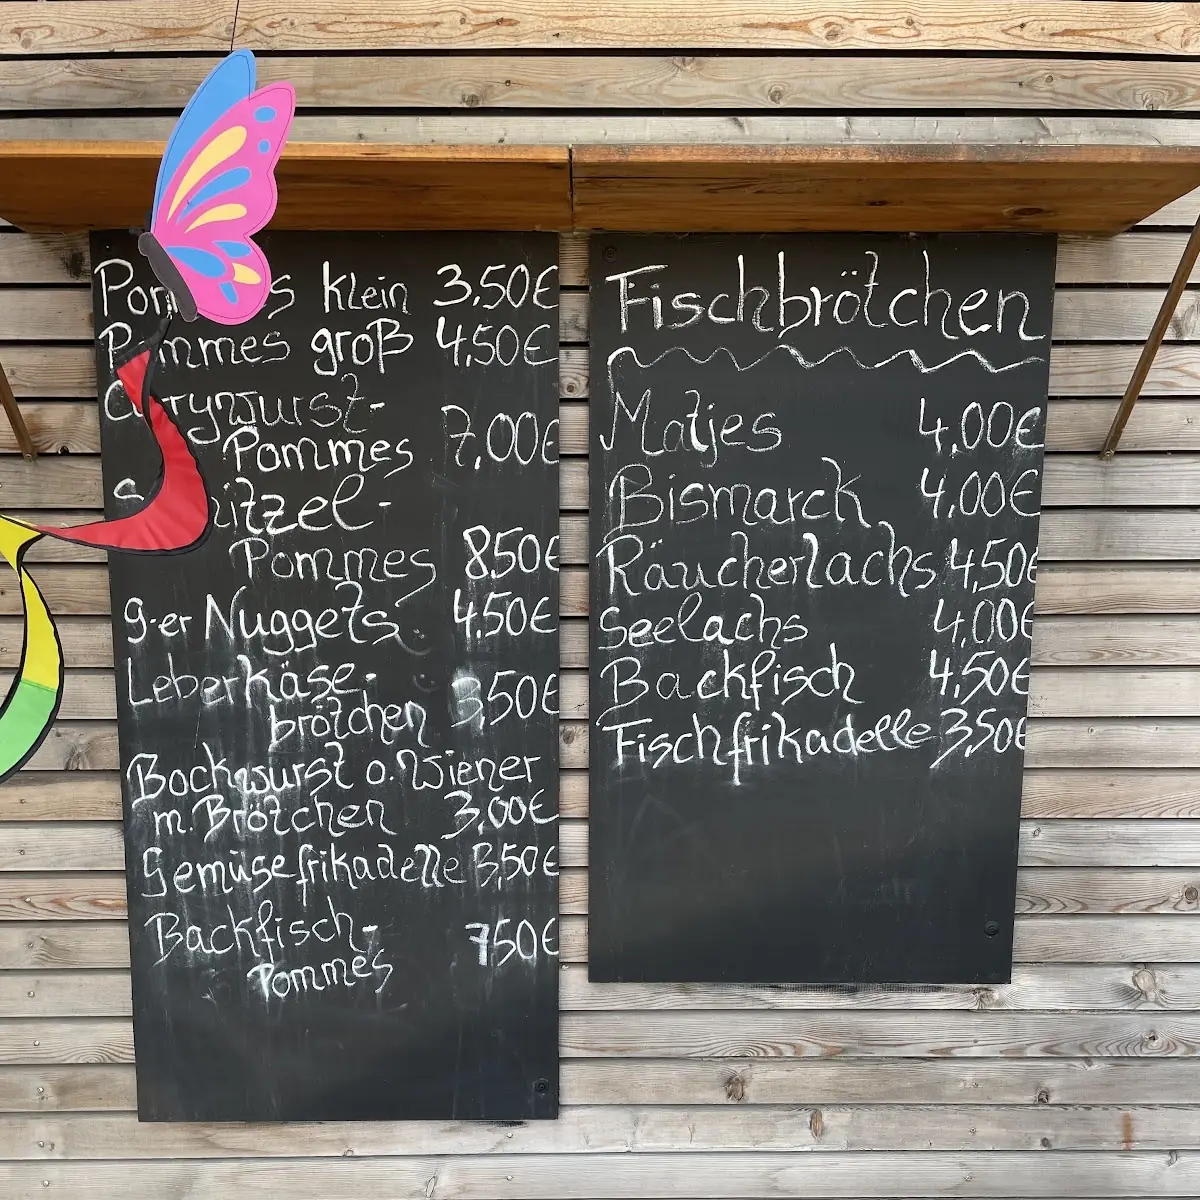 Pommes klein 3,50€
Pommes groß 4,50€
Currywurst-
Pommes 7,00€
Schnitzel-
Pommes 8,50€
9-er Nuggets 4,50€
Leberkäse-
brötchen 3,50€
Bockwurst o. Wiener
m. Brötchen 3,00€
Gemüsefrikadelle 3,50€
Backfisch-
Pommes 7,50€
Fischbrötchen
Matjes 4,00€
Bismarck 4,00€
Räucherlachs 4,50€
Seelachs 4,00€
Backfisch 4,50€
Fischfrikadelle 3,50€